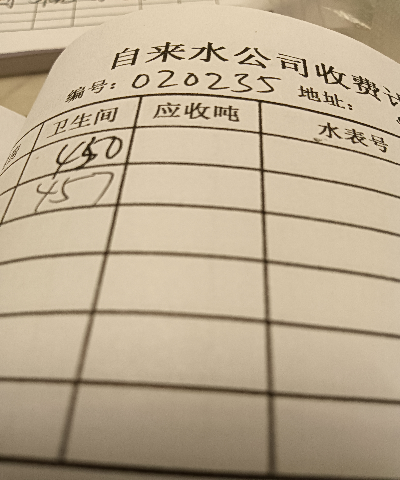 自来水公司收费
编号: 020235 地址:
卫生间 应收吨 水表号
450
457